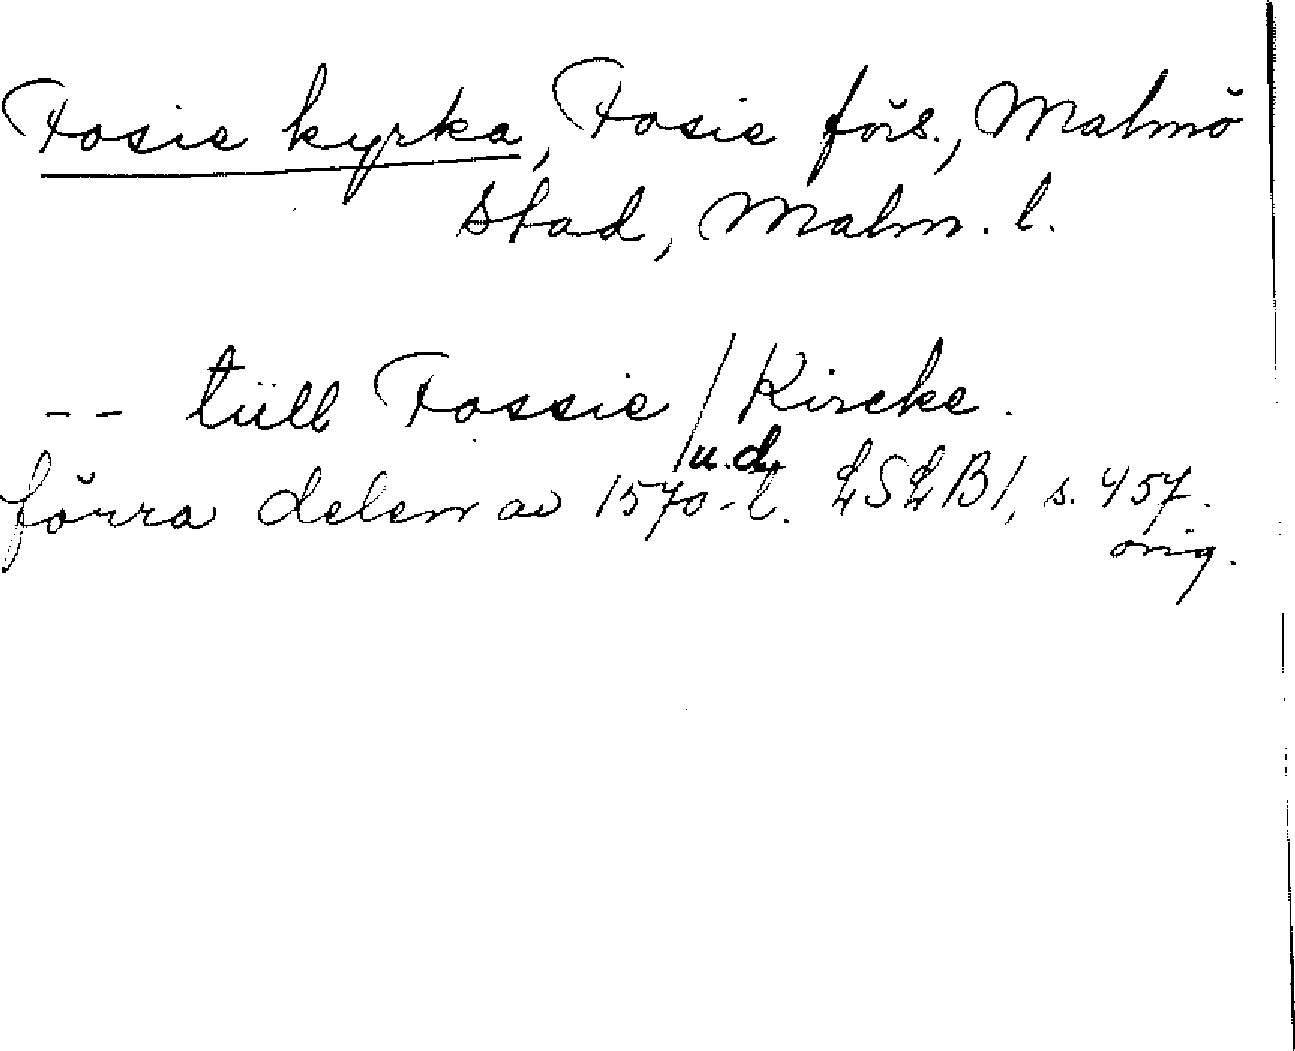 Fosie kyrka, Fosie förs., Malmö
stad, Malm. l.
-- tüll Fossie / Kircke.
u.d.
förra delen av 1570-t. LSLB1, s. 457.
orig.